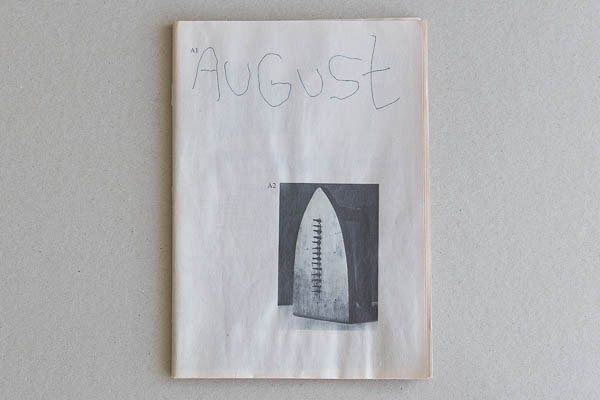 A1
AUGUSt
A2